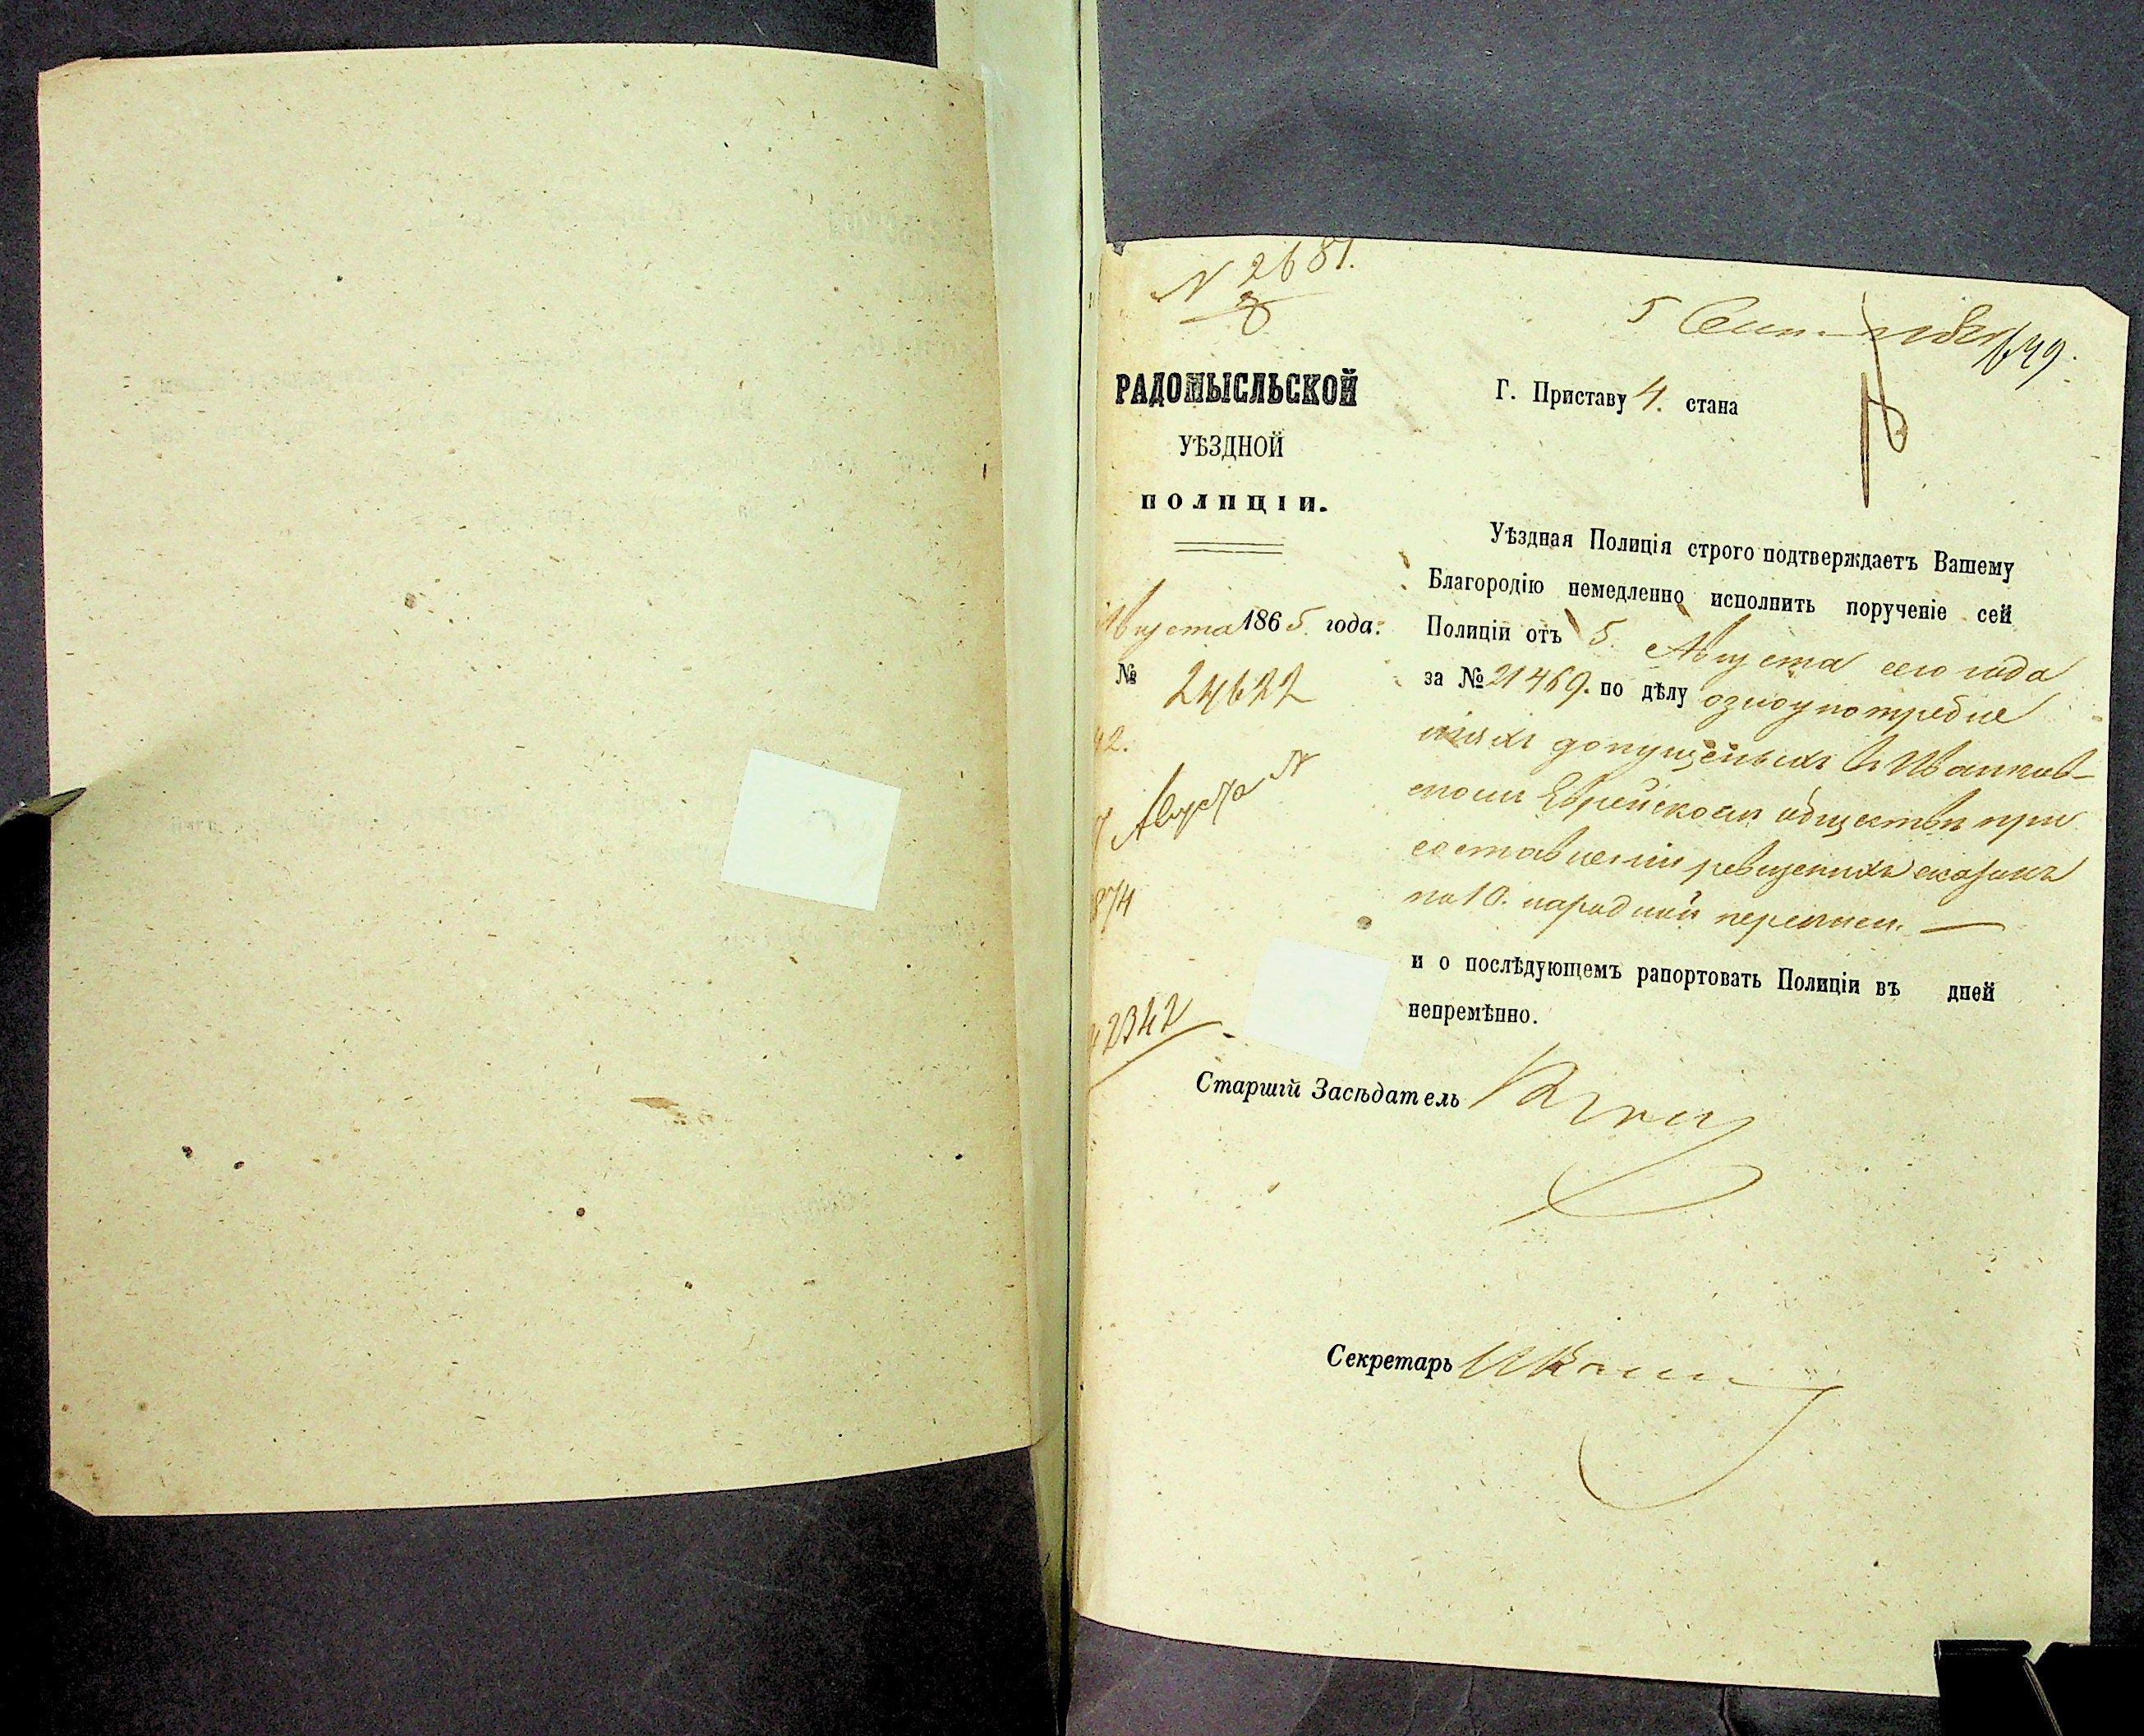 N 2681.
5 Сентября
149.
РАДОМЫСЛЬСКОЙ
УѢЗДНОЙ
ПОЛИЦІИ.
Августа 1865 года.
№ 24622
42.
Августа N
874
2342
Г. Приставу 4. стана
Уѣздная Полиція строго подтверждаетъ Вашему
Благородію немедленно исполнить порученіе сей
Полиціи отъ 5. Августа сего года
за № 21469. по дѣлу о злоупотребле
ніяхъ допущеныхъ въ Иванков-
скомъ Еврейскомъ обществѣ при
составленіи ревизскихъ сказокъ
по 10. народной переписи. —
и о послѣдующемъ рапортовать Полиціи въ дней
непремѣнно.
Старшій Засѣдатель
Секретарь